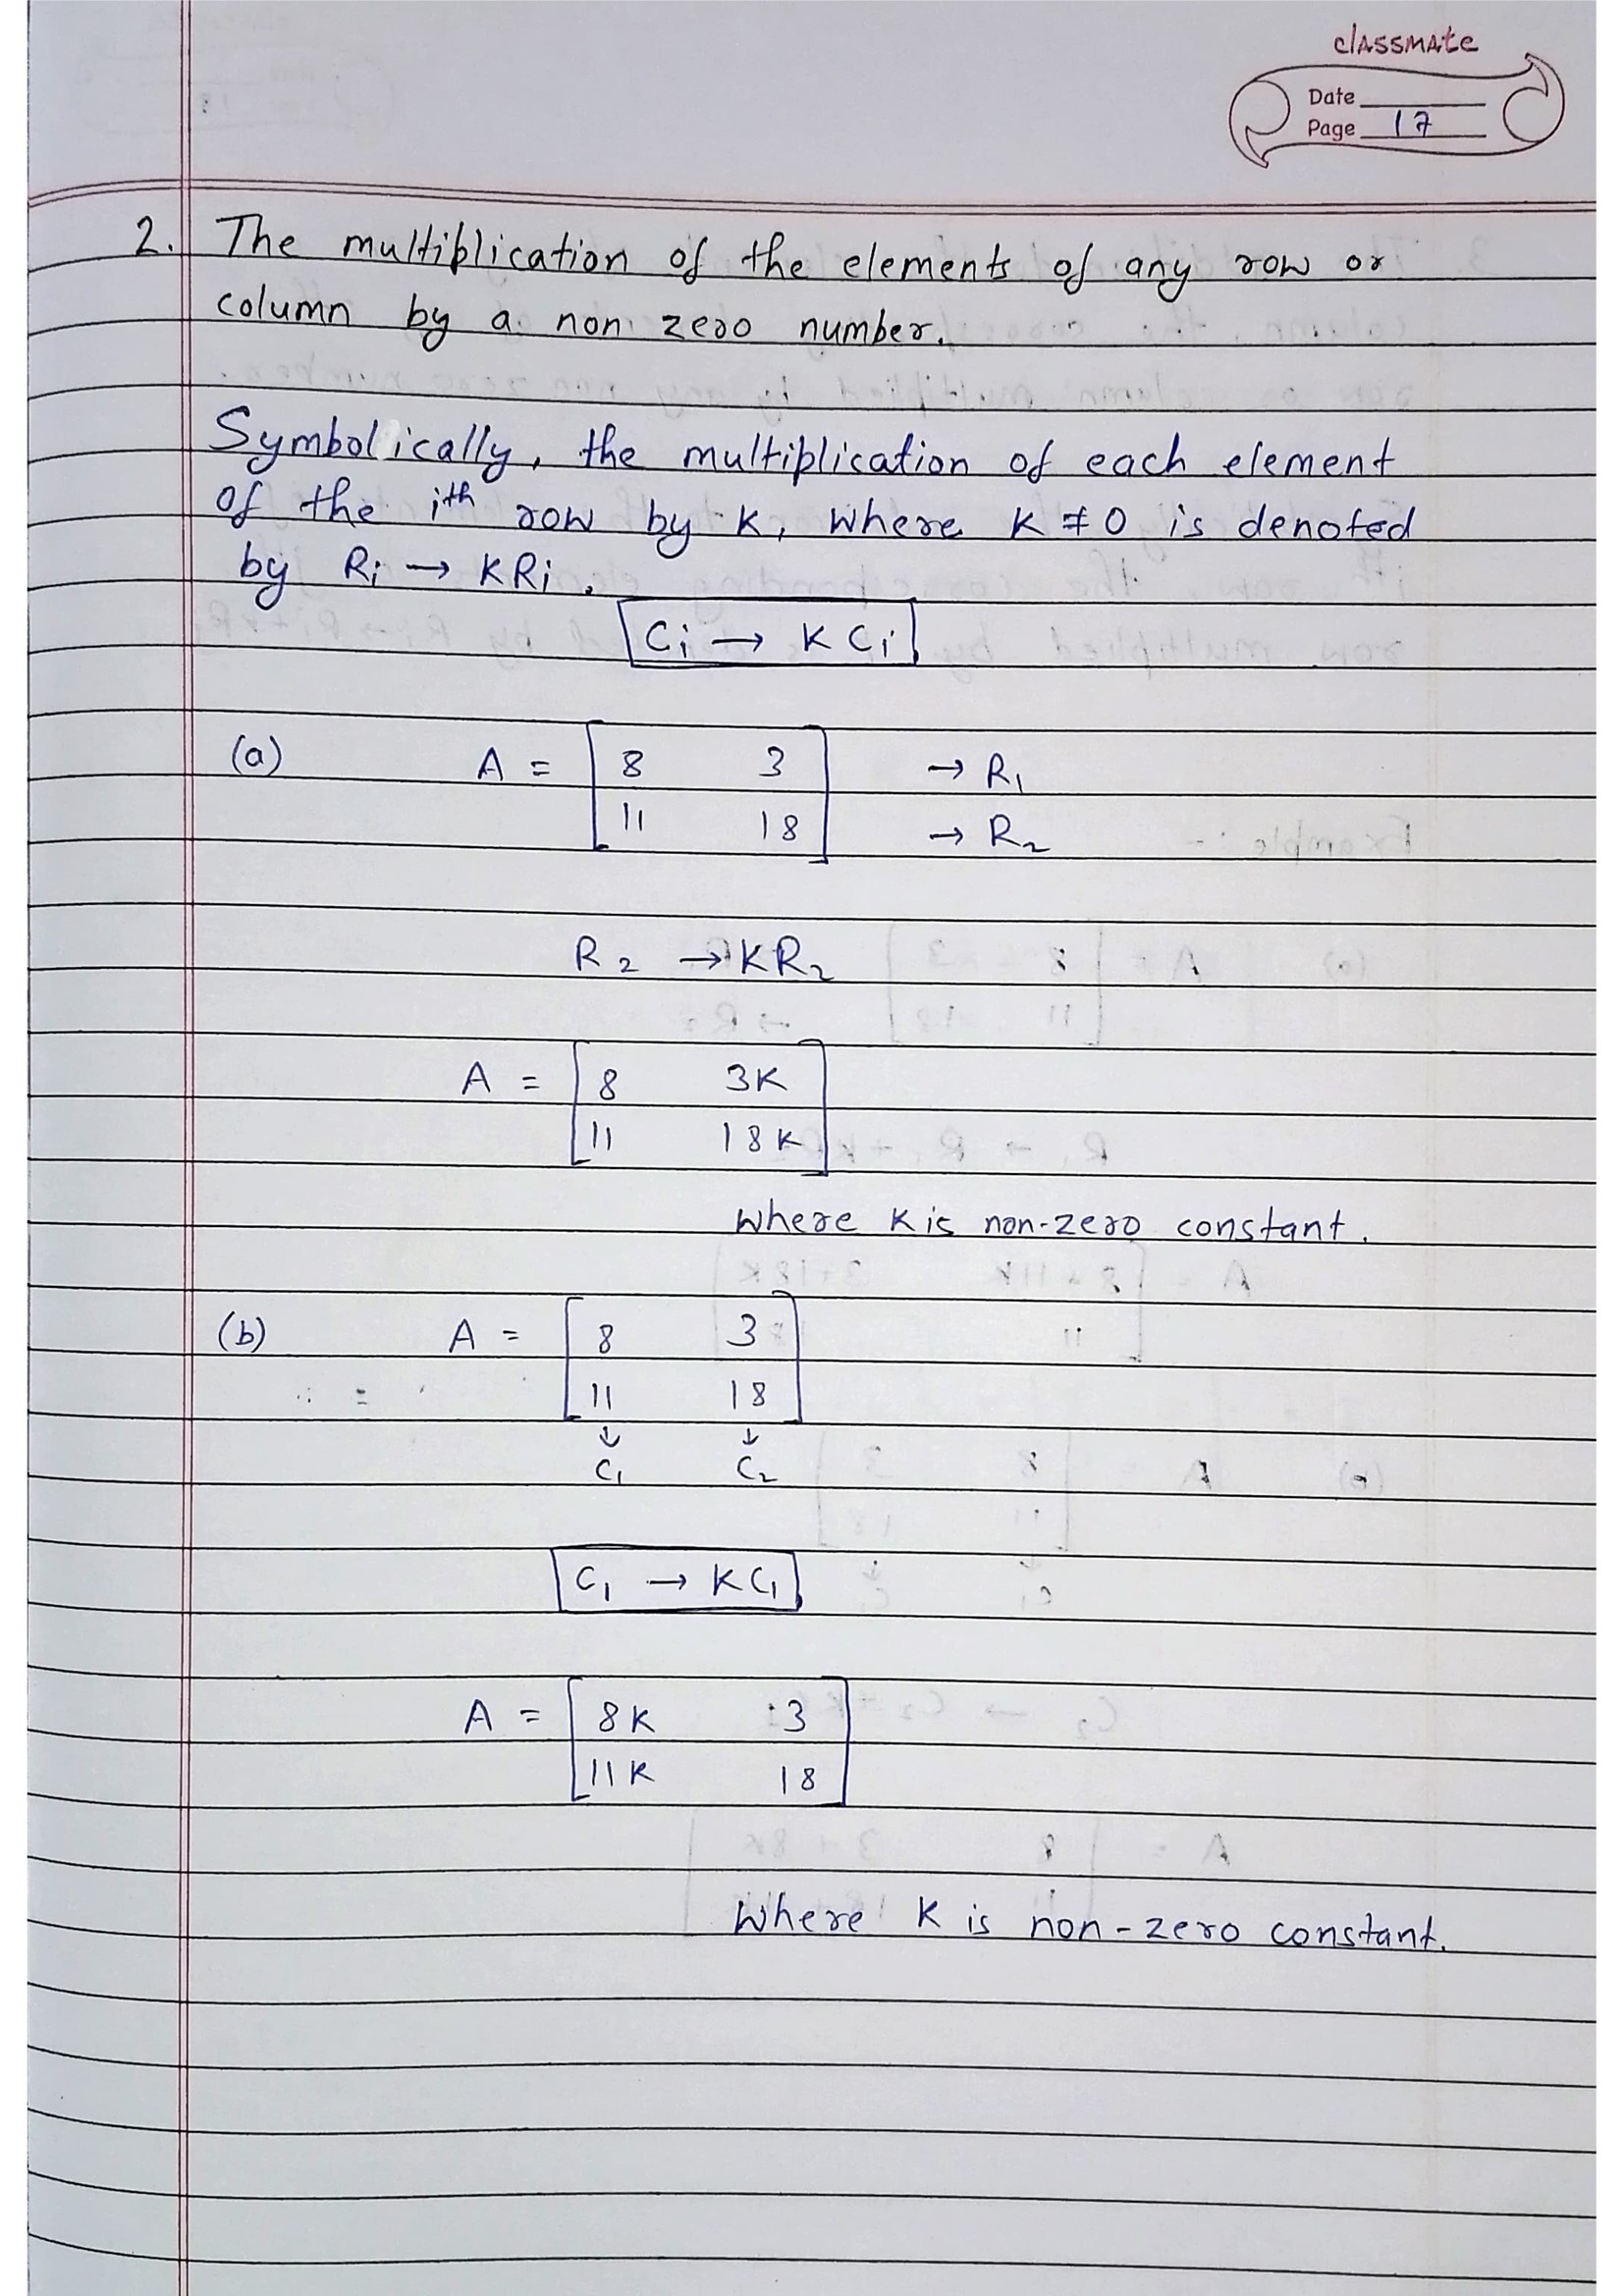 classmate
Date
Page 17
2. The multiplication of the elements of any row or
column by a non zero number.
Symbolically, the multiplication of each element
of the ith row by K, where K ≠ 0 is denoted
by Ri → KRi.
Ci → KCi
(a) A = [ 8 3 → R1
11 18 ] → R2
R2 → KR2
A = [ 8 3K
11 18K ]
where K is non-zero constant.
(b) A = [ 8 3
11 18 ]
↓ ↓
C1 C2
C1 → KC1
A = [ 8K 3
11K 18 ]
where K is non-zero constant.